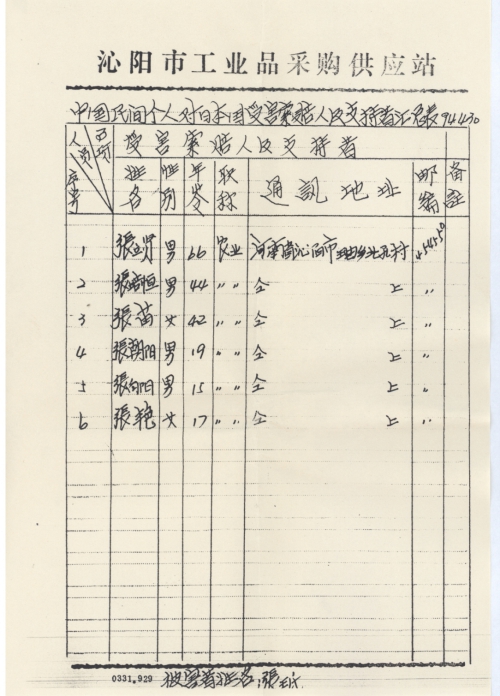 沁阳市工业品采购供应站
中国民间个人对日本国受害索赔人及支持者汇总表 94.4.30
人员序号 四项 受害索赔人及支持者
姓名 性别 年令 职称 通訊地址 邮编 备註
1 張 男 66 农业 河南省沁阳市 村 454550
2 張 男 44 〃 〃 仝 上 〃
3 張苗 女 42 〃 〃 仝 上 〃
4 張朝阳 男 19 〃 〃 仝 上 〃
5 張向阳 男 15 〃 〃 仝 上 〃
6 張艳 女 17 〃 〃 仝 上 〃
0331.929 被害者姓名 張